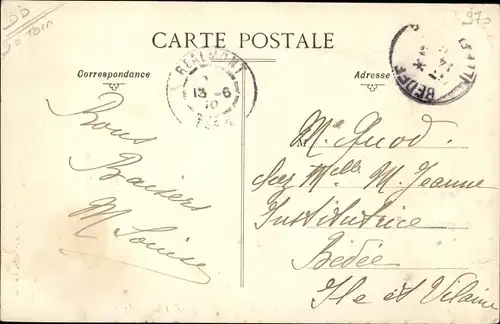 Tarn
970
CARTE POSTALE
Correspondance
Adresse
REALMONT
13 -6
10
TARN
BEDEE
14
Bons
Baisers
M Louise
chez Melle M. Jeanne
Institutrice
Bédée
Ile et Vilaine